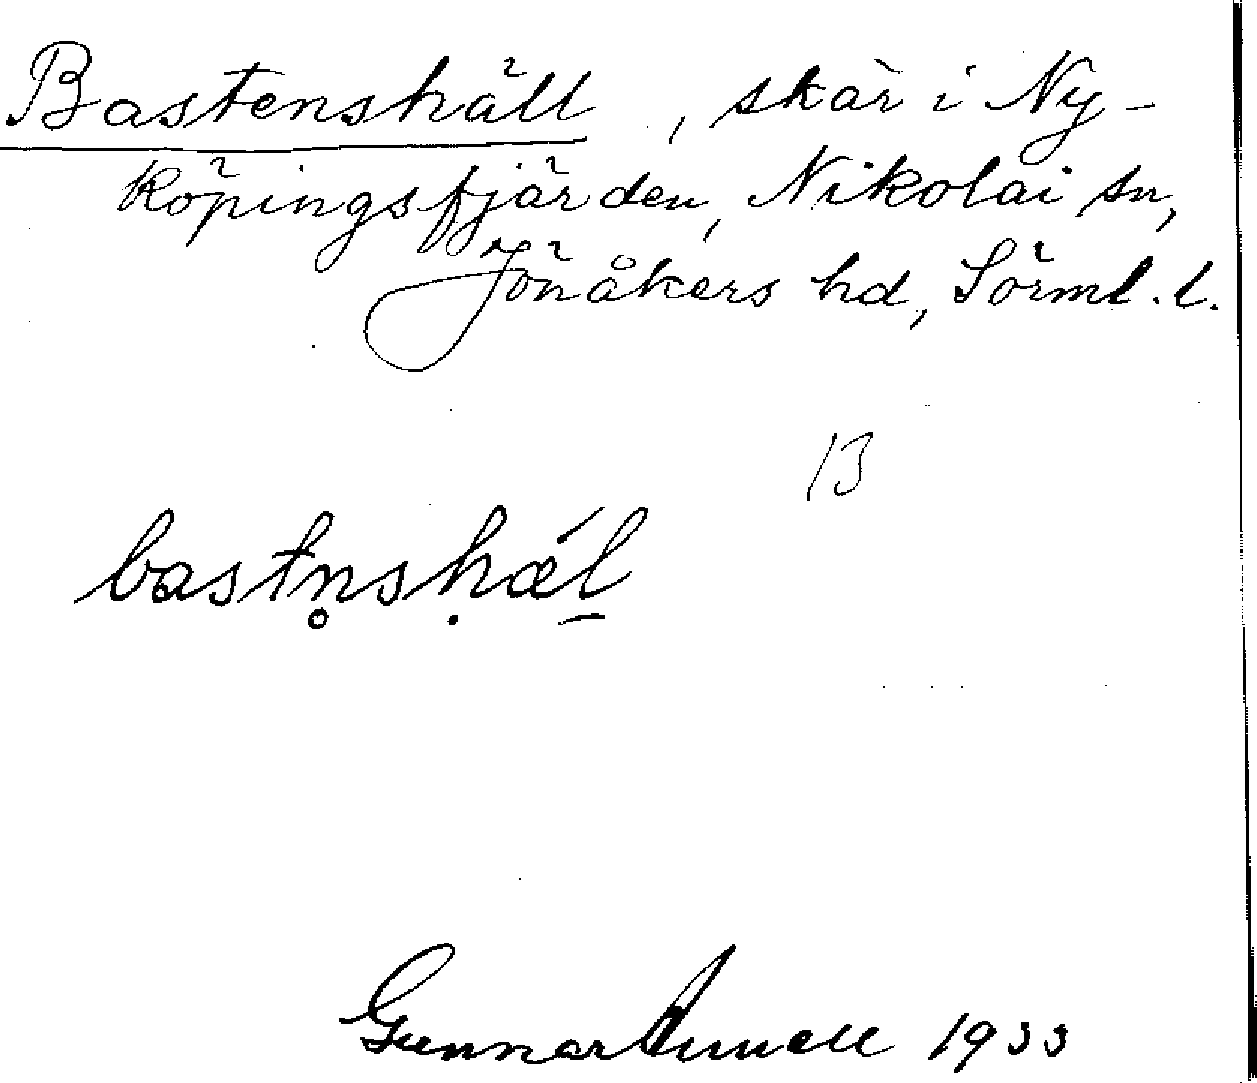 Bastenshäll, skär i Ny-
köpingsfjärden, Nikolai sn,
Jönåkers hd, Sörml. l.
13
bastn̥sḥæ´l̲
Gunnar 1933